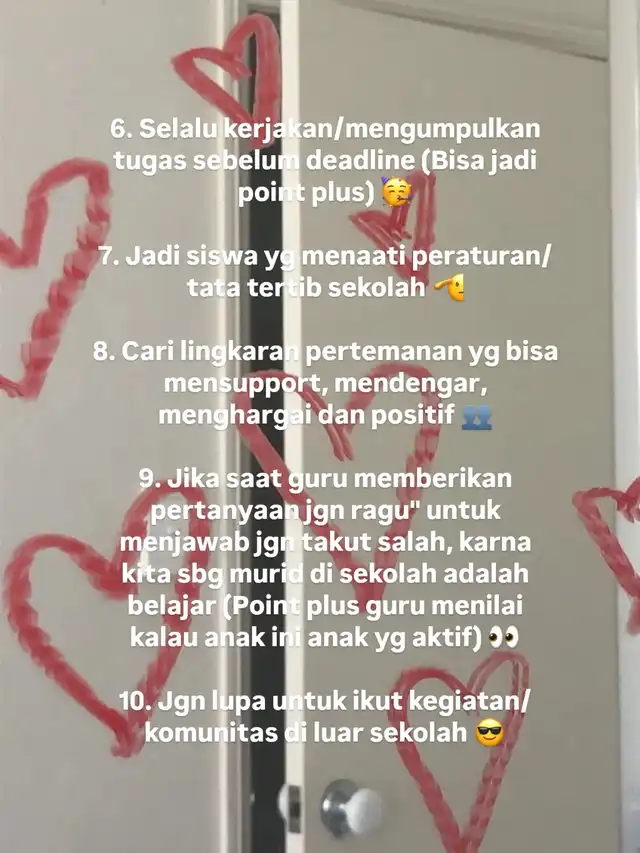 6. Selalu kerjakan/mengumpulkan
tugas sebelum deadline (Bisa jadi
point plus) 🥳
7. Jadi siswa yg menaati peraturan/
tata tertib sekolah 🫡
8. Cari lingkaran pertemanan yg bisa
mensupport, mendengar,
menghargai dan positif 👥
9. Jika saat guru memberikan
pertanyaan jgn ragu" untuk
menjawab jgn takut salah, karna
kita sbg murid di sekolah adalah
belajar (Point plus guru menilai
kalau anak ini anak yg aktif) 👀
10. Jgn lupa untuk ikut kegiatan/
komunitas di luar sekolah 😎